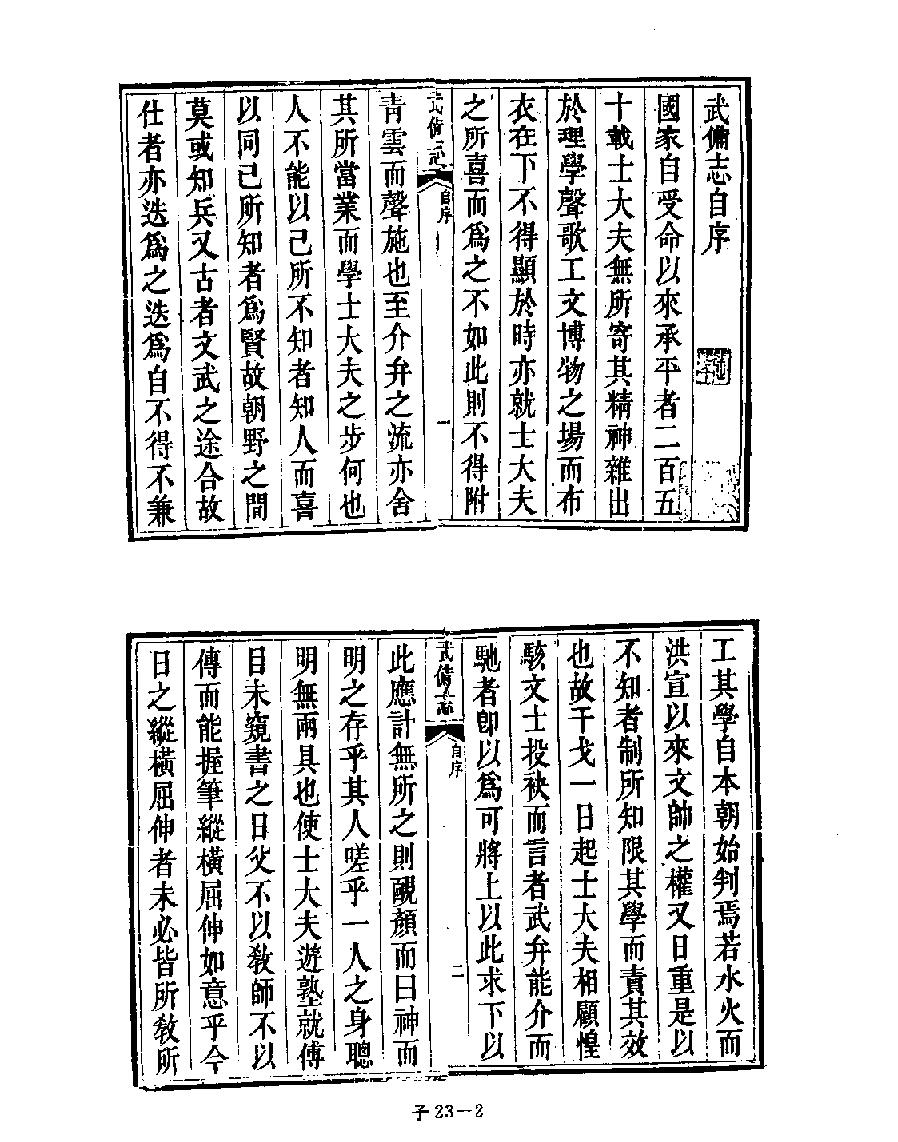 武備志自序
國家自受命以來承平者二百五
十載士大夫無所寄其精神雜出
於理學聲歌工文博物之場而布
衣在下不得顯於時亦就士大夫
之所喜而爲之不如此則不得附
武備志 自序 一
青雲而聲施也至介弁之流亦舍
其所當業而學士大夫之步何也
人不能以己所不知者知人而喜
以同己所知者爲賢故朝野之間
莫或知兵又古者文武之途合故
仕者亦迭爲之迭爲自不得不兼
工其學自本朝始判焉若水火而
洪宣以來文帥之權又日重是以
不知者制所知限其學而責其效
也故干戈一日起士大夫相顧惶
駭文士投袂而言者武弁能介而
馳者卽以爲可將上以此求下以
武備志 自序 二
此應計無所之則靦顏而曰神而
明之存乎其人嗟乎一人之身聰
明無兩具也使士大夫遊塾就傅
目未窺書之日父不以敎師不以
傳而能握筆縱橫屈伸如意乎今
日之縱橫屈伸者未必皆所敎所
子23－2